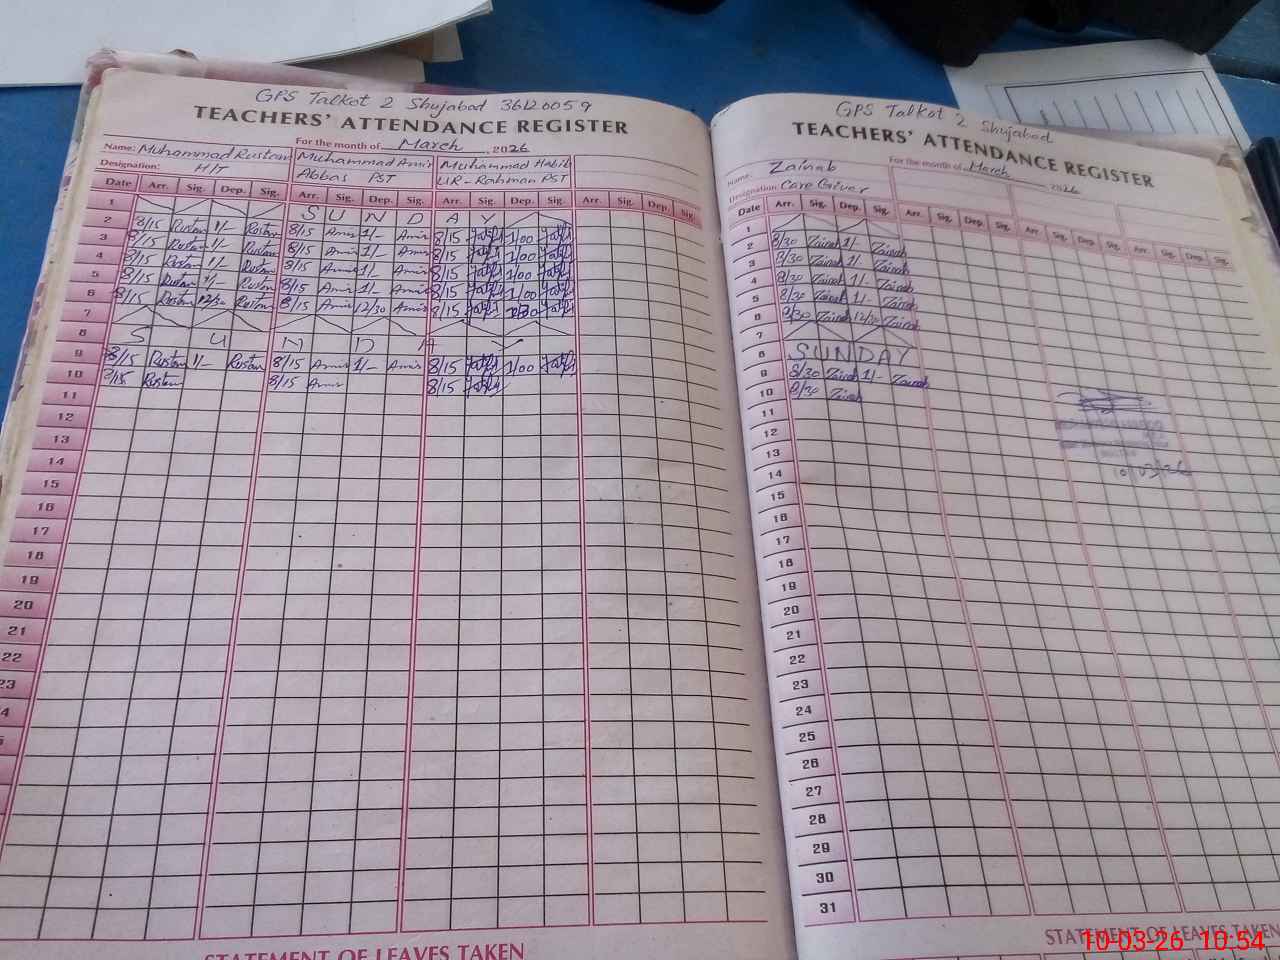 GPS Talkot 2 Shujabad 36120059
TEACHERS' ATTENDANCE REGISTER
For the month of March 2026
Name: Muhammad Rustam
Muhammad Amir Abbas PST
Muhammad Habib UR-Rahman PST
Designation: H/T
Date Arr. Sig. Dep. Sig. Arr. Sig. Dep. Sig. Arr. Sig. Dep. Sig. Arr. Sig. Dep. Sig.
1 S U N D A Y
2 8/15 Rustam 1/- Rustam 8/15 Amir 1/- Amir 8/15 1/00
3 8/15 Rustam 1/- Rustam 8/15 Amir 1/- Amir 8/15 1/00
4 8/15 Rustam 1/- Rustam 8/15 Amir 1/- Amir 8/15 1/00
5 8/15 Rustam 1/- Rustam 8/15 Amir 1/- Amir 8/15 1/00
6 8/15 Rustam 12/30 Rustam 8/15 Amir 12/30 Amir 8/15
7
8 S U N D A Y
9 8/15 Rustam 1/- Rustam 8/15 Amir 1/- Amir 8/15 1/00
10 8/15 Rustam 8/15 Amir 8/15
11
12
13
14
15
16
17
18
19
20
21
22
23
STATEMENT OF LEAVES TAKEN
GPS Talkot 2 Shujabad
TEACHERS' ATTENDANCE REGISTER
For the month of March 2026
Name: Zainab
Designation: Care Giver
Date Arr. Sig. Dep. Sig. Arr. Sig. Dep. Sig. Arr. Sig. Dep. Sig. Arr. Sig. Dep. Sig.
1
2 8/30 Zainab 1/- Zainab
3 8/30 Zainab 1/- Zainab
4 8/30 Zainab 1/- Zainab
5 8/30 Zainab 1/- Zainab
6 8/30 Zainab 12/30 Zainab
7
8 SUNDAY
9 8/30 Zainab 1/- Zainab
10 8/30 Zainab
11
12
13
14
10/03/26
15
16
17
18
19
20
21
22
23
24
25
26
27
28
29
30
31
STATEMENT OF LEAVES TAKEN
10-03-26 10:54